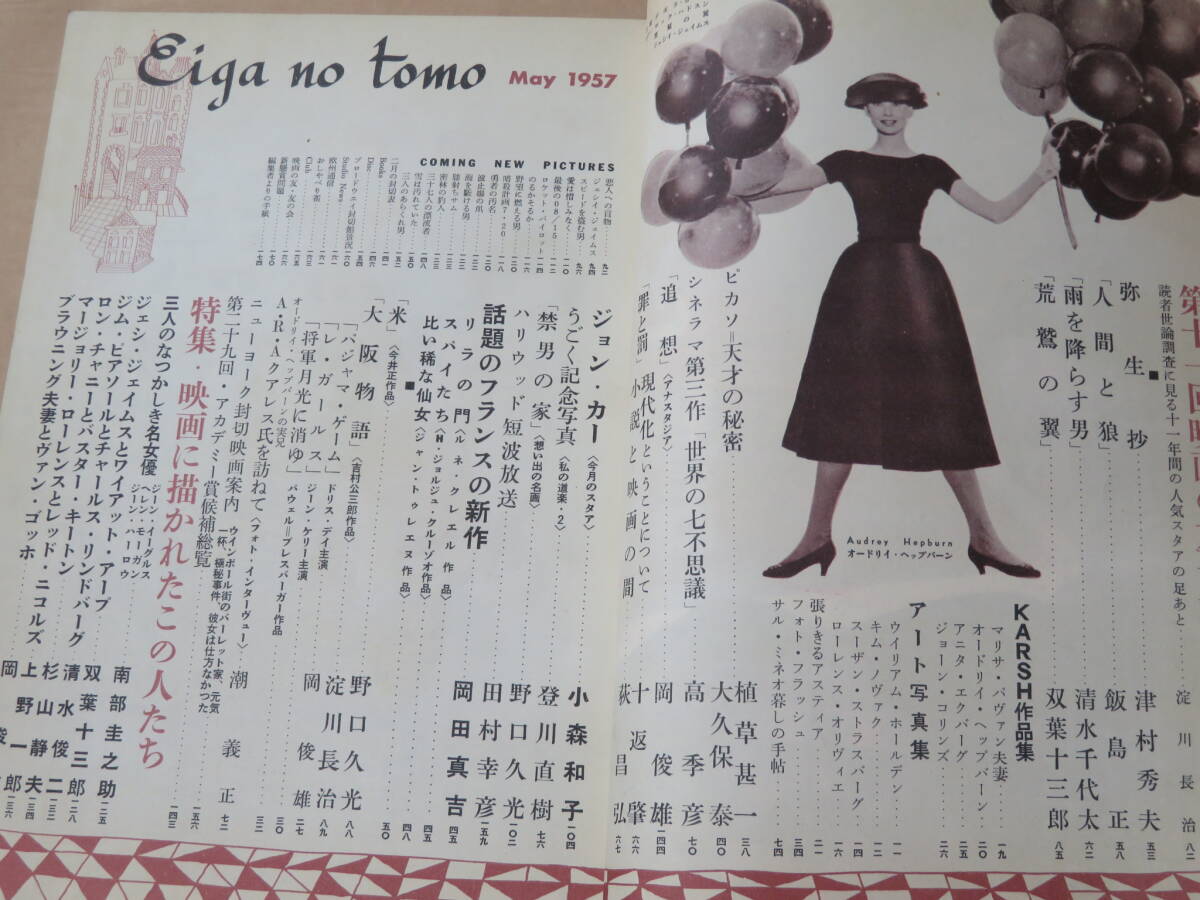 Eiga no tomo May 1957
読者世論調査に見る十一年間の人気スタアの足あと…淀川長治 八二
■
弥生抄…津村秀夫 五三
「人間と狼」…飯島正 五八
「雨を降らす男」…清水千代太 六二
「荒鷲の翼」…双葉十三郎 八五
Audrey Hepburn
オードリイ・ヘップバーン
KARSH作品集
マリサ・パヴァン夫妻…一九
オードリイ・ヘップバーン…二〇
アニタ・エクバーグ…二五
ジョーン・コリンズ…二六
アート写真集
ウイリアム・ホールデン…一一
キム・ノヴァク…一二
スーザン・ストラスバーグ…一四
ローレンス・オリヴィエ…一六
張りきるアスティア…二一
フォト・フラッシュ…三四
サル・ミネオ暮しの手帖…七四
ピカソ＝天才の秘密…植草甚一 三八
シネラマ第三作「世界の七不思議」…大久保泰
「追想」〈アナスタジア〉…高季彦 七〇
「罪と罰」現代化ということについて…岡俊雄 一四四
小説と映画の間…十返肇 六六
荻昌弘 六七
COMING NEW PICTURES
悪人への貢物…九二
ジェシイ・ジェイムス…九四
スピードを盗む男…九六
愛は惜しみなく…一一〇
最後の08/15…一一二
ロケット・パイロット…一一四
のるかそるか
野望に燃える男
暗殺計画7・20…一一八
勇者の汚名…一二〇
波止場の爪
海を駈ける男
狙射ちサム
密林の釣人
三十七人の漂流者
雪は汚れていた…一四八
三人のあらくれ男…一五二
二月の封切表
Books
Disc
ブロードウェイ封切館景況
Studio News
欧州通信
おしゃべり雀
Club
映画の友・友の会
新懸賞問題…一七〇
編集者よりの手紙…一七四
ジョン・カー〈今月のスタア〉…小森和子 一〇四
うごく記念写真〈私の道楽・2〉…登川直樹 七六
「禁男の家」〈想い出の名画〉…野口久光 一〇二
ハリウッド短波放送…田村幸彦 一五九
話題のフランスの新作…岡田真吉 四五
リラの門〈ルネ・クレエル作品〉…四五
スパイたち〈H・ジョルジュ・クルーゾオ作品〉
比い稀な仙女〈ジャン・トゥレエヌ作品〉
■
「米」〈今井正作品〉…四八
「大阪物語」〈吉村公三郎作品〉…五〇
「パジャマ・ゲーム」ドリス・デイ主演…野口久光 八八
「レ・ガールス」ジーン・ケリー主演…淀川長治 八九
「将軍月光に消ゆ」パウエル＝プレスバーガー作品…岡俊雄 二七
オードリイ・ヘップバーンの実兄
A・R・Aクアレス氏を訪ねて〈フォト・インターヴュー〉…三二
ニューヨーク封切映画案内 ウインポール街のバーレット家、元気一杯、極秘事件、彼女は仕方なかった…潮義正 七二
第二十九回・アカデミー賞候補総覧…一五六
特集・映画に描かれたこの人たち…一四三
三人のなつかしき名女優 ジーン・イーグルス ヘレン・モーガン ジーン・ハーロウ…南部圭之助 一二五
ジェシ・ジェイムスとワイアット・アープ…双葉十三郎 一二八
ジム・ピアソールとチャールス・リンドバーグ…清水俊二
ロン・チャニーとバスター・キートン…杉山静夫 一三四
マージョリー・ローレンスとレッド・ニコルズ…上野一郎 一三六
ブラウニング夫妻とヴァン・ゴッホ…岡俊